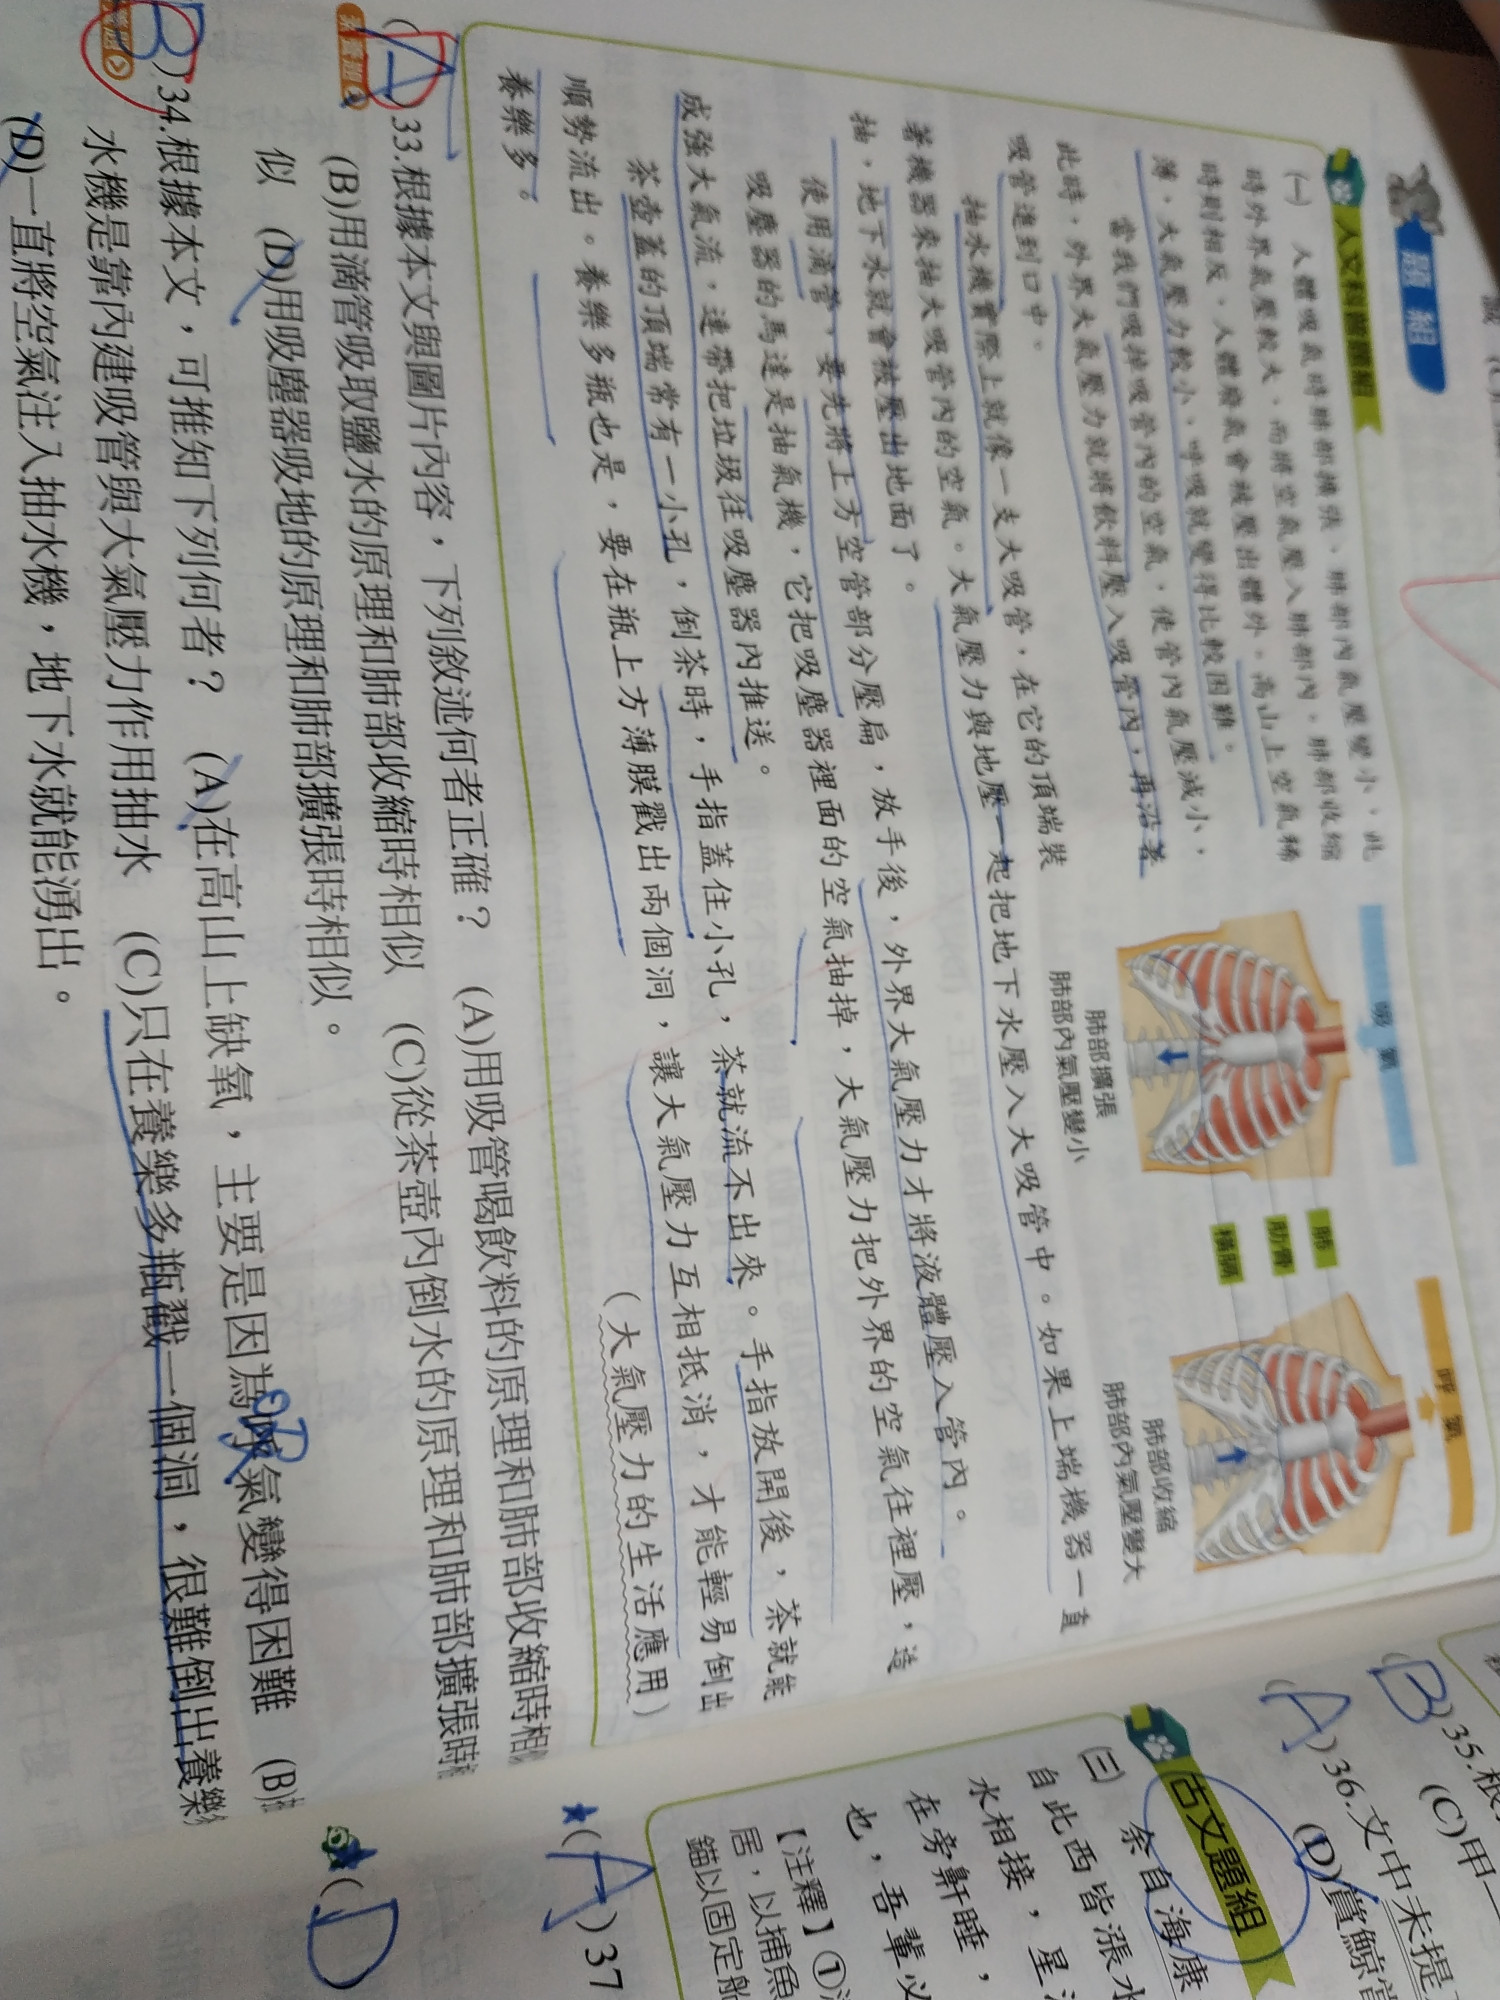 題組
人文科普題組
(一) 人體吸氣時肺部擴張，肺部內氣壓變小，此
時外界氣壓較大，而將空氣壓入肺部內。肺部收縮
時則相反，人體廢氣會被壓出體外。高山上空氣稀
薄，大氣壓力較小，呼吸就變得比較困難。
當我們吸掉吸管內的空氣，使管內氣壓減小，
此時，外界大氣壓力就將飲料壓入吸管內，再沿著
吸管進到口中。
抽水機實際上就像一支大吸管，在它的頂端裝
著機器來抽大吸管內的空氣。大氣壓力與地壓一起把地下水壓入大吸管中。如果上端機器一直
抽，地下水就會被壓出地面了。
使用滴管，要先將上方空管部分壓扁，放手後，外界大氣壓力才將液體壓入管內。
吸塵器的馬達是抽氣機，它把吸塵器裡面的空氣抽掉，大氣壓力把外界的空氣往裡壓，造
成強大氣流，連帶把垃圾往吸塵器內推送。
茶壺蓋的頂端常有一小孔，倒茶時，手指蓋住小孔，茶就流不出來。手指放開後，茶就能
順勢流出。養樂多瓶也是，要在瓶上方薄膜戳出兩個洞，讓大氣壓力互相抵消，才能輕易倒出
養樂多。
（大氣壓力的生活應用）
吸氣
肺部擴張
肺部內氣壓變小
肺
肋骨
橫膈
呼氣
肺部收縮
肺部內氣壓變大
(A)33.根據本文與圖片內容，下列敘述何者正確？ (A)用吸管喝飲料的原理和肺部收縮時相
素養題
(B)用滴管吸取鹽水的原理和肺部收縮時相似 (C)從茶壺內倒水的原理和肺部擴張時相
似 (D)用吸塵器吸地的原理和肺部擴張時相似。
(B)34.根據本文，可推知下列何者？ (A)在高山上缺氧，主要是因為呼氣變得困難 (B)
吸
水機是靠內建吸管與大氣壓力作用抽水 (C)只在養樂多瓶戳一個洞，很難倒出養樂
(D)一直將空氣注入抽水機，地下水就能湧出。
(B)35.根
(C)甲
(A)36.文中未提
(D)賞鯨當
古文題組
(三) 余自海康
自此西皆漲水
水相接，星
在旁鼾睡，
也，吾輩必
【注釋】①
居，以捕魚
錨以固定船
(A)37
(D